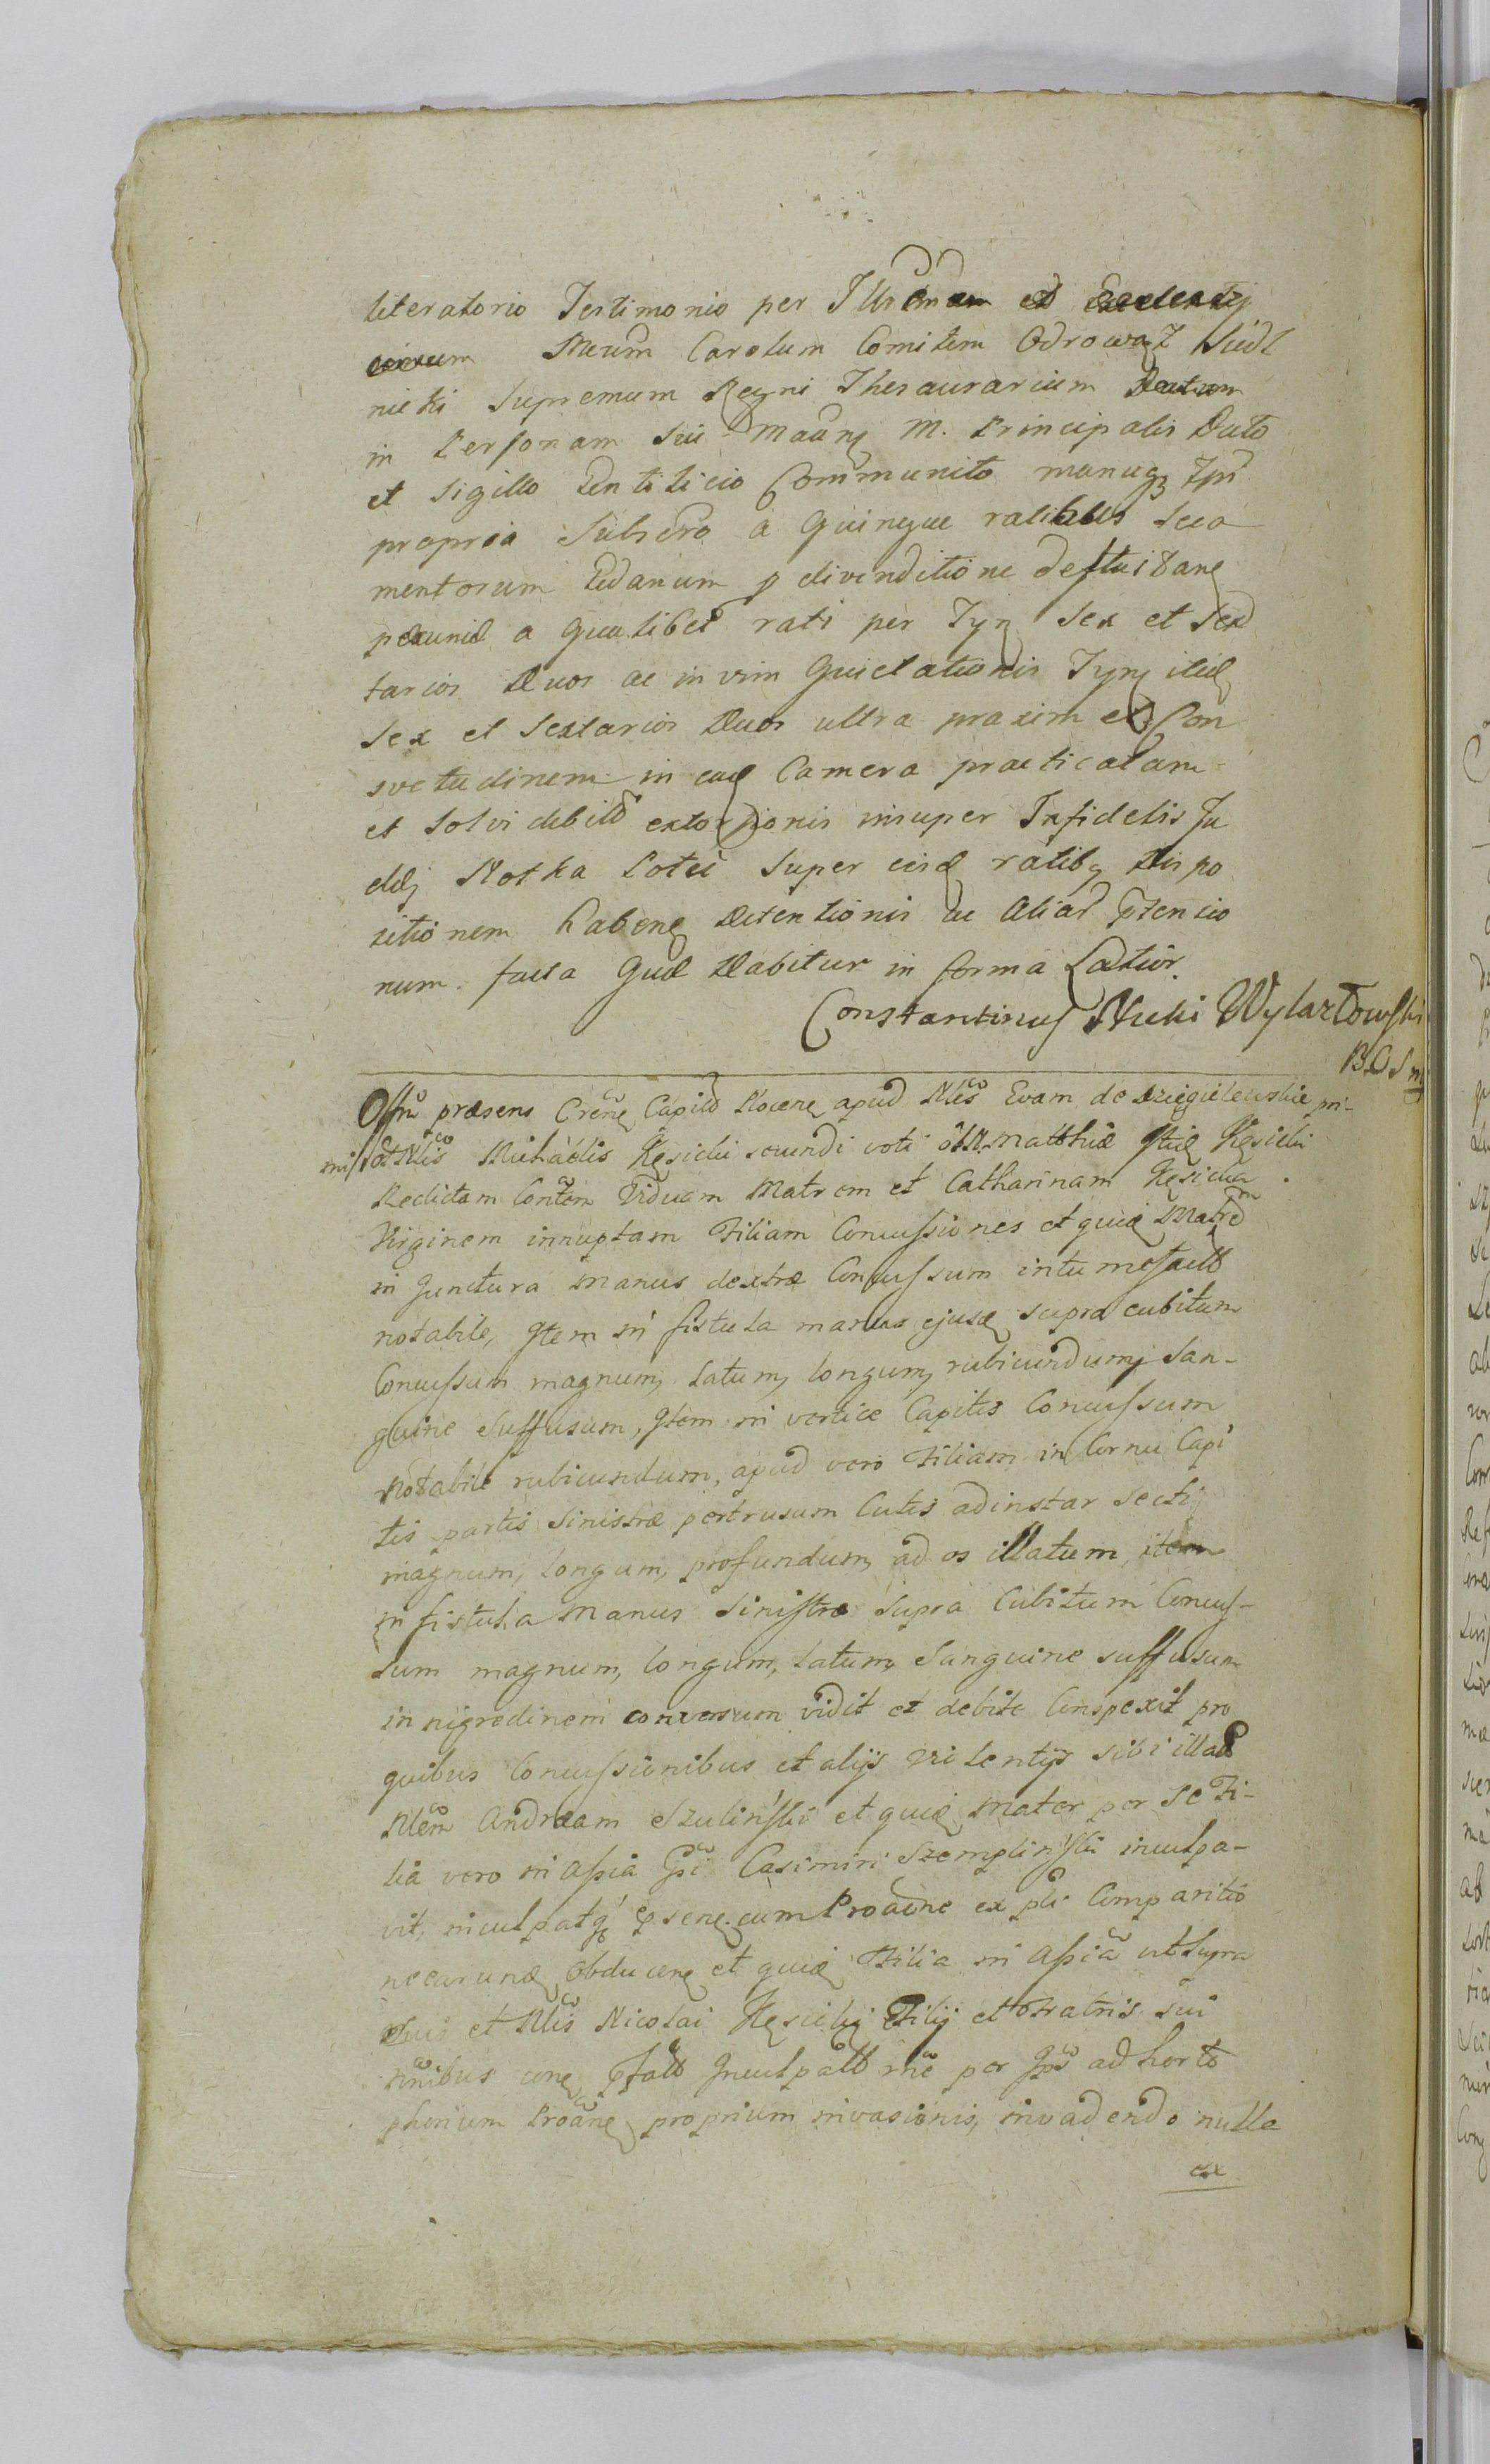 literatorio Testimonio per Illrem et Excellentis
simum Dnum Carolum Comitem Odrowąz Siedl
nicki Supremum Regni Thesaurarium Datum
in Personam Sui M. Principalis Dato
et Sigillo Gentilicio Communito manuq; Ipī
propria Subscro a quinque ratibus Seca
mentorum p divenditione
pecunia a qualibet rati per Tyn Sex et Sex
tarios Duos ac in vim Quietationis Tyn itid
Sex et Sextarios Duos ultra praxim et Con
svetudinem in ead Camera practicatam
et Solvi debitō extorsionis insuper Infidelis Ju
daej Noska Potei Super iisd ratibq Dispo
sitionem haben Detentionis ac Aliar ptensio
num facta Quae Dabitur in forma Latior.
Constantinus Nicki Wylazłowski
B. G. S. m
Offm praesens Capitan Nocen apud Nlēs Evam de Dzięgielewskie pri-
mi voti Nlis Michaelis Kęsicki secundi voti olim Matthiae itid Kęsicki
Relictam Contem Viduam Matrem et Catharinam Kęsicka
Virginem innuptam Filiam Concussiones et quid Matrem
in Junctura manus dextrae Concussum intumefactū
notabile, Item in fistula manus ejusd supra cubitum
Concussum magnum, latum, longum, rubicundum, San-
guine Suffusum, Item in vertice Capitis Concussum
Notabile rubicundum, apud vero Filiam in Cornu Capi
tis partis Sinistrae pertrusum Cutis ad instar Secti,
magnum, longum, profundum, ad os illatum, item
in fistula Manus Sinistrae Supra Cubitum Concus-
sum magnum, longum, latum, Sanguine suffusum
in nigredinem conversum vidit et debite Conspexit pro
quibus Concussionibus et alijs violentijs sibi illatis
Nlem Andream Szuliński et quid Mater per Se Fi-
lia vero in assia Gsi Casimiri Szempliński inculpa-
vit, inculpatq, psen. cum Proacne ex pli Comparitio
ne earund obducen et quid Filia in assia ut Supra
Suis et Nlis Nicolai Kęsicki Filij et Fratris sui
nōibus con pfatū Inculpatū rne per Ips ad horto
phorium proprium invasionis, invadendo nulla
ex